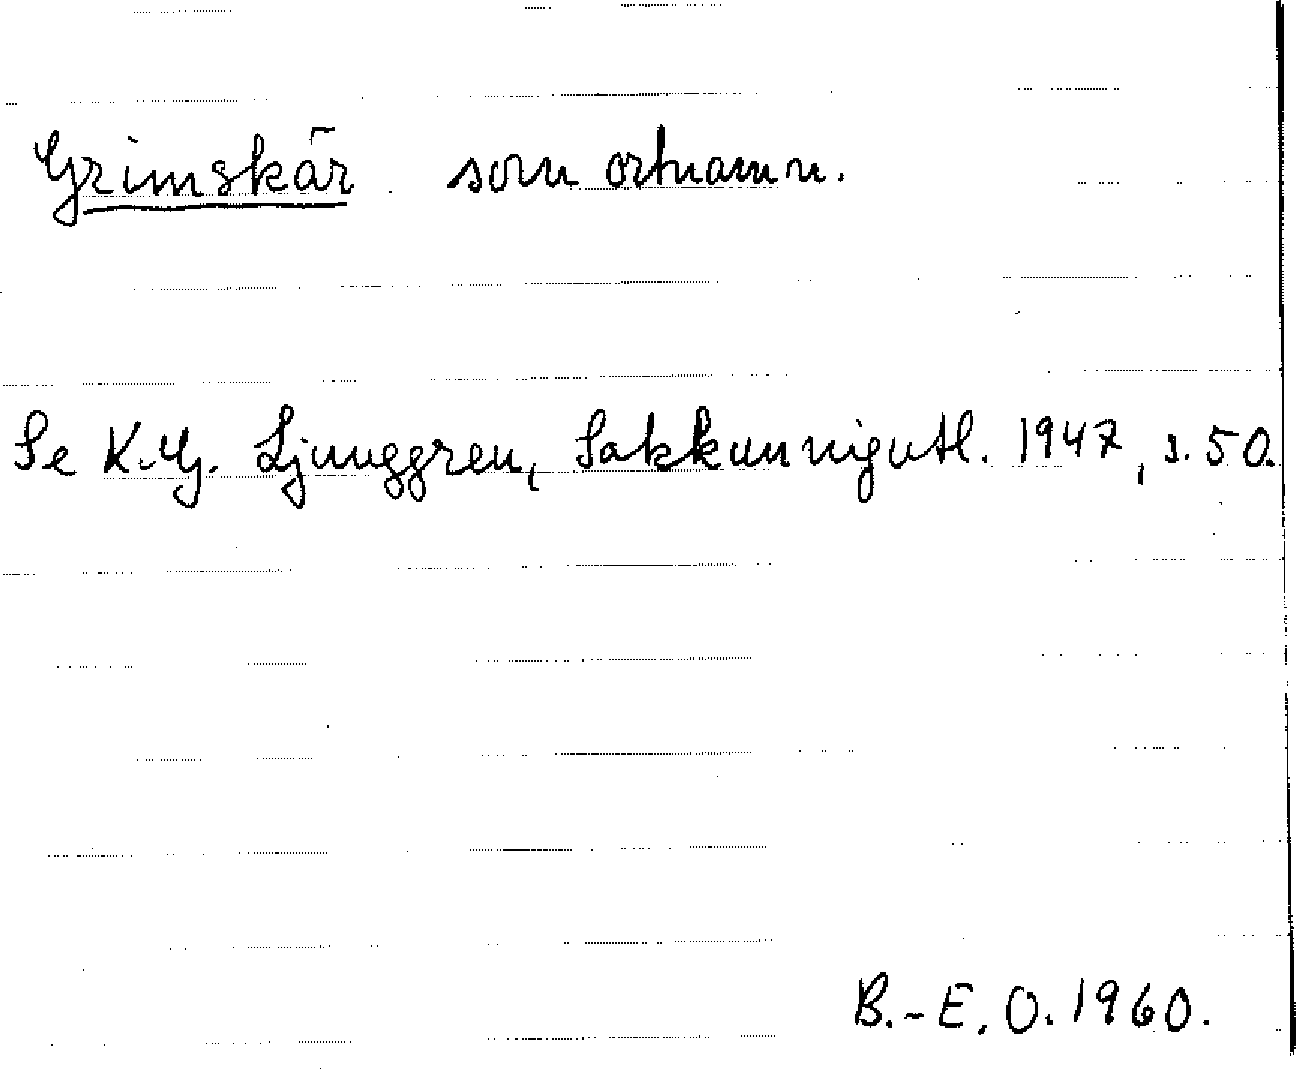 Grimskär som ortnamn.
Se K.G. Ljunggren, Sakkunnigutl. 1947, s. 50.
B.-E. O. 1960.